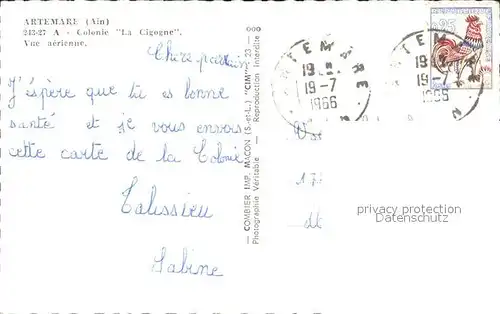 ARTEMARE (Ain)
243-27 A - Colonie "La Cigogne".
Vue aérienne.
Chère
J'éspère que tu es bonne
santé et je vous envois
cette carte de la Colonie
Talissieu
Sabine
COMBIER IMP. MACON (S.-et-L.) "CIM" - 23 -
Photographie Véritable - Reproduction Interdite
ARTEMARE
19-7
1966
ARTEM
19-7
1966
0,25
privacy protection
Datenschutz